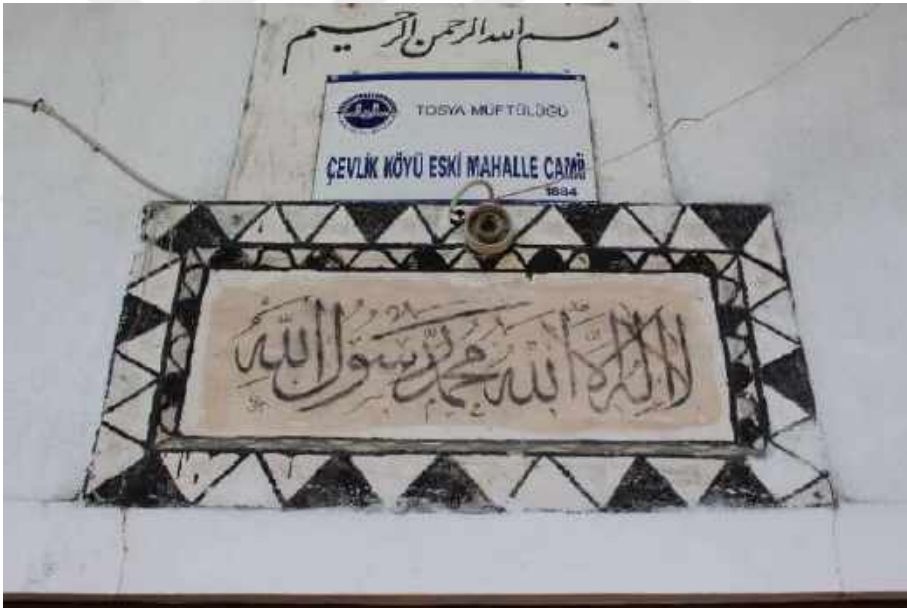 بسم الله الرحمن الرحيم
TOSYA MÜFTÜLÜĞÜ
ÇEVLİK KÖYÜ ESKİ MAHALLE CAMİİ
1884
لا اله الا الله محمد رسول الله